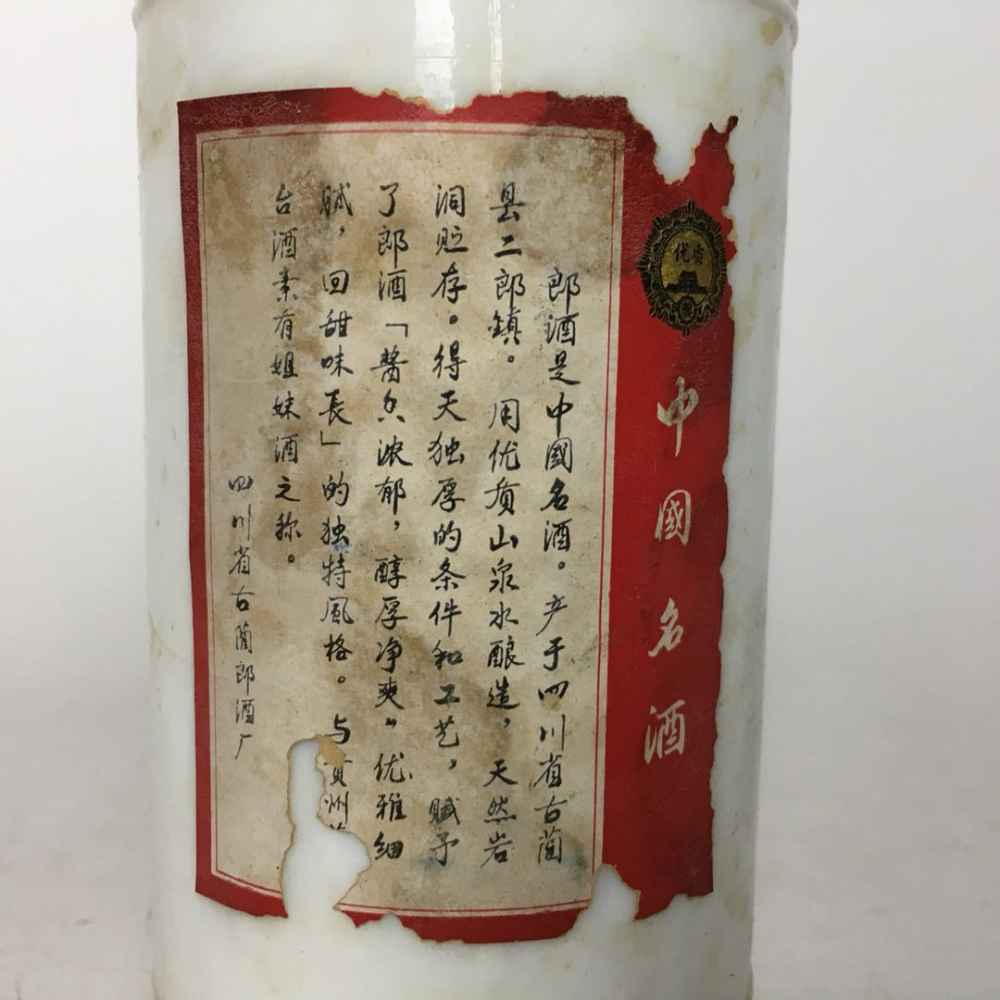 中國名酒
郎酒是中國名酒。产于四川省古蔺
县二郎鎮。用优质山泉水酿造，天然岩
洞贮存。得天独厚的条件和工艺，赋予
了郎酒「酱香浓郁，醇厚净爽，优雅细
腻，回甜味長」的独特風格。与贵州
台酒素有姐妹酒之称。
四川省古蔺郎酒厂